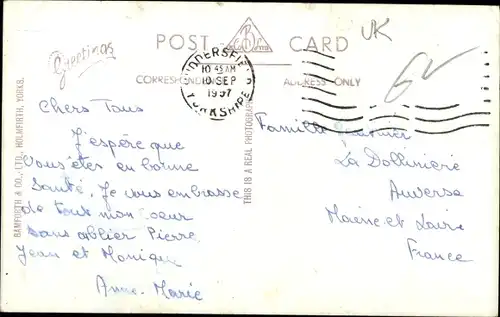 Greetings
POST CARD
UK
CORRESPONDENCE
ADDRESS ONLY
HUDDERSFIELD
10 45 AM
10 SEP
1957
YORKSHIRE
BAMFORTH & CO., LTD., HOLMFIRTH, YORKS.
THIS IS A REAL PHOTOGRAPH
Chers Tous
J'espère que
Vous êtes en bonne
Santé. Je vous embrasse
de tout mon cœur
sans oublier Pierre
Jean et Monique
Anne-Marie
Famille
La Dollinière
Auverse
Maine et Loire
France